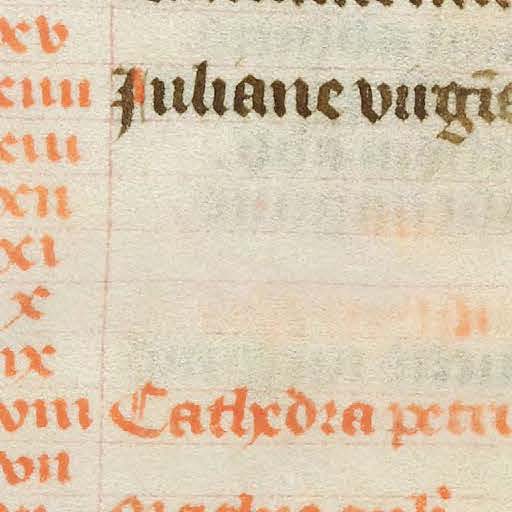 xv
xiiii Juliane virgi
xiii
xii
xi
x
ix
viii Cathedra petri
vii